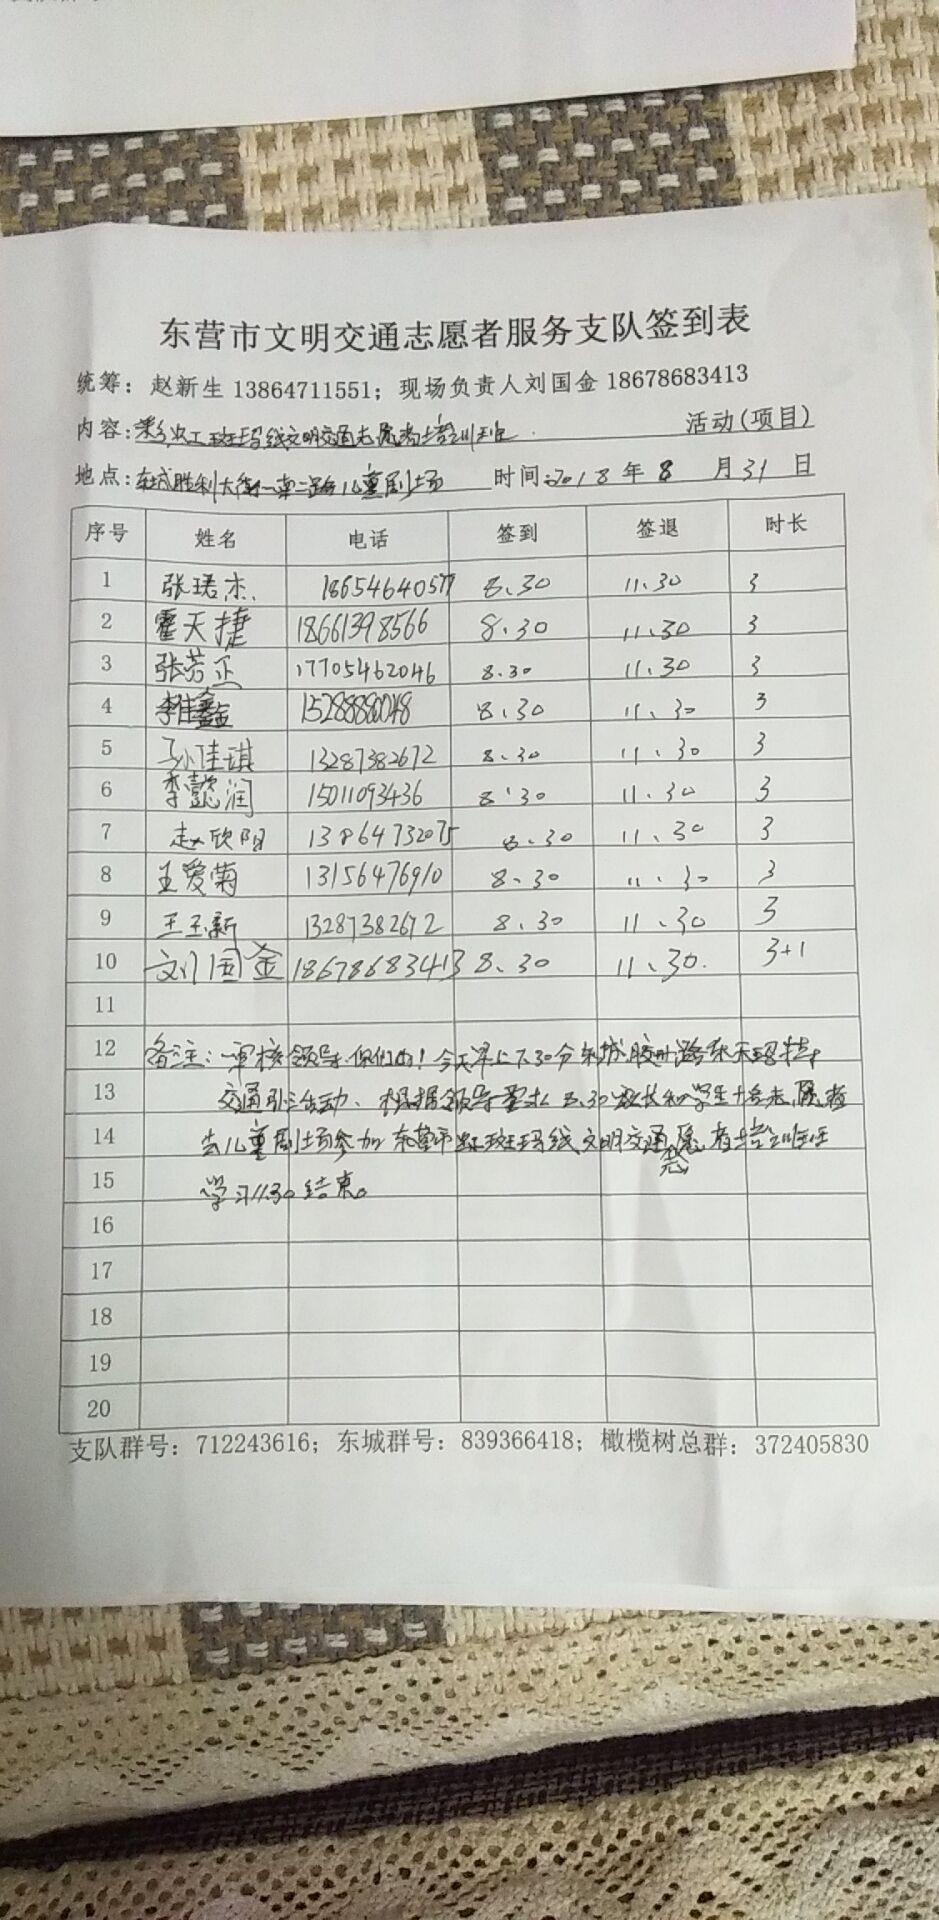 东营市文明交通志愿者服务支队签到表
统筹：赵新生 13864711551；现场负责人刘国金 18678683413
内容：彩虹斑玛线文明交通志愿者培训班 活动(项目)
地点：东城胜利大街一东二路儿童剧场 时间:2018年8月31日
序号 姓名 电话 签到 签退 时长
1 张珺杰 1865464057 8.30 11.30 3
2 霍天捷 18661398566 8.30 11.30 3
3 张芳正 17705462046 8.30 11.30 3
4 李佳鑫 8.30 11.30 3
5 孙佳琪 13287382672 8.30 11.30 3
6 李懿润 15011093436 8.30 11.30 3
7 赵欣阳 13864732075 8.30 11.30 3
8 王爱菊 13156476910 8.30 11.30 3
9 王玉新 13287382672 8.30 11.30 3
10 刘国金 18678683413 8.30 11.30. 3+1
11
12 备注：审核领导你们好！今天早上7.30分东城胶州路
13 交通引导活动、根据领导要求 8.30 家长和学生 志愿者
14 去儿童剧场参加东营市彩虹斑玛线文明交通志愿者培训班
15 学习11.30结束。
16
17
18
19
20
支队群号：712243616；东城群号：839366418；橄榄树总群：372405830